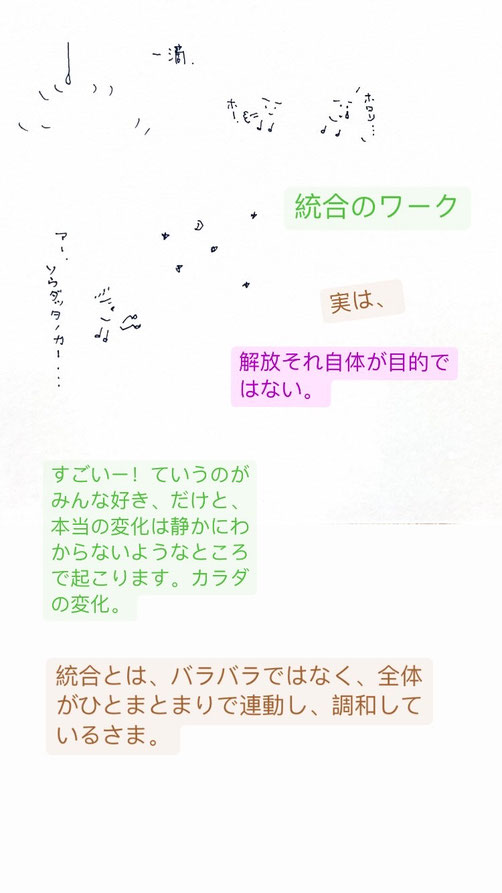 一滴.
ホー.
ホロリ…
統合のワーク
アー、ソウダッタノカー…
実は、
解放それ自体が目的で
はない。
すごいー！ていうのが
みんな好き、だけと、
本当の変化は静かにわ
からないようなところ
で起こります。カラダ
の変化。
統合とは、バラバラではなく、全体
がひとまとまりで連動し、調和して
いるさま。